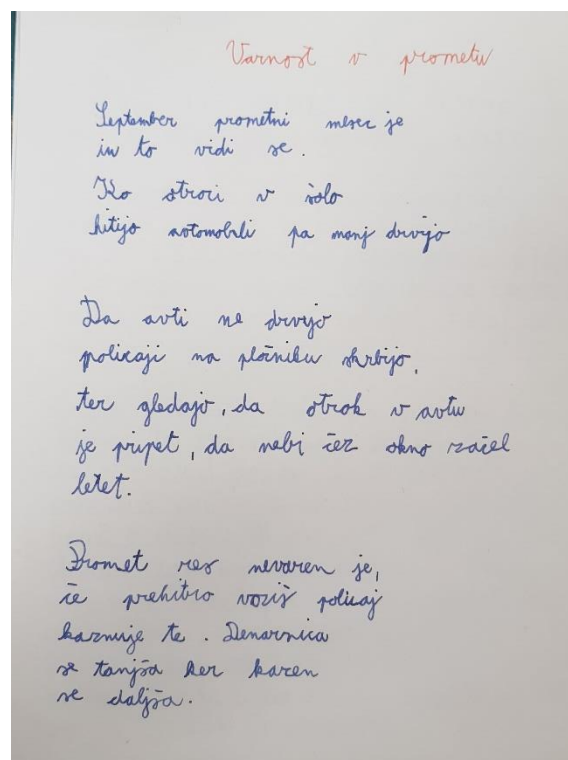 Varnost v prometu
September prometni mesec je
in to vidi se.
Ko otroci v šolo
hitijo avtomobili pa manj drvijo
Da avti ne drvijo
policaji na pločniku skrbijo,
ter gledajo, da otrok v avtu
je pripet, da nebi čez okno začel
letet.
Promet res nevaren je,
če prehitro voziš policaj
kaznuje te. Denarnica
se tanjša ker kazen
se daljša.